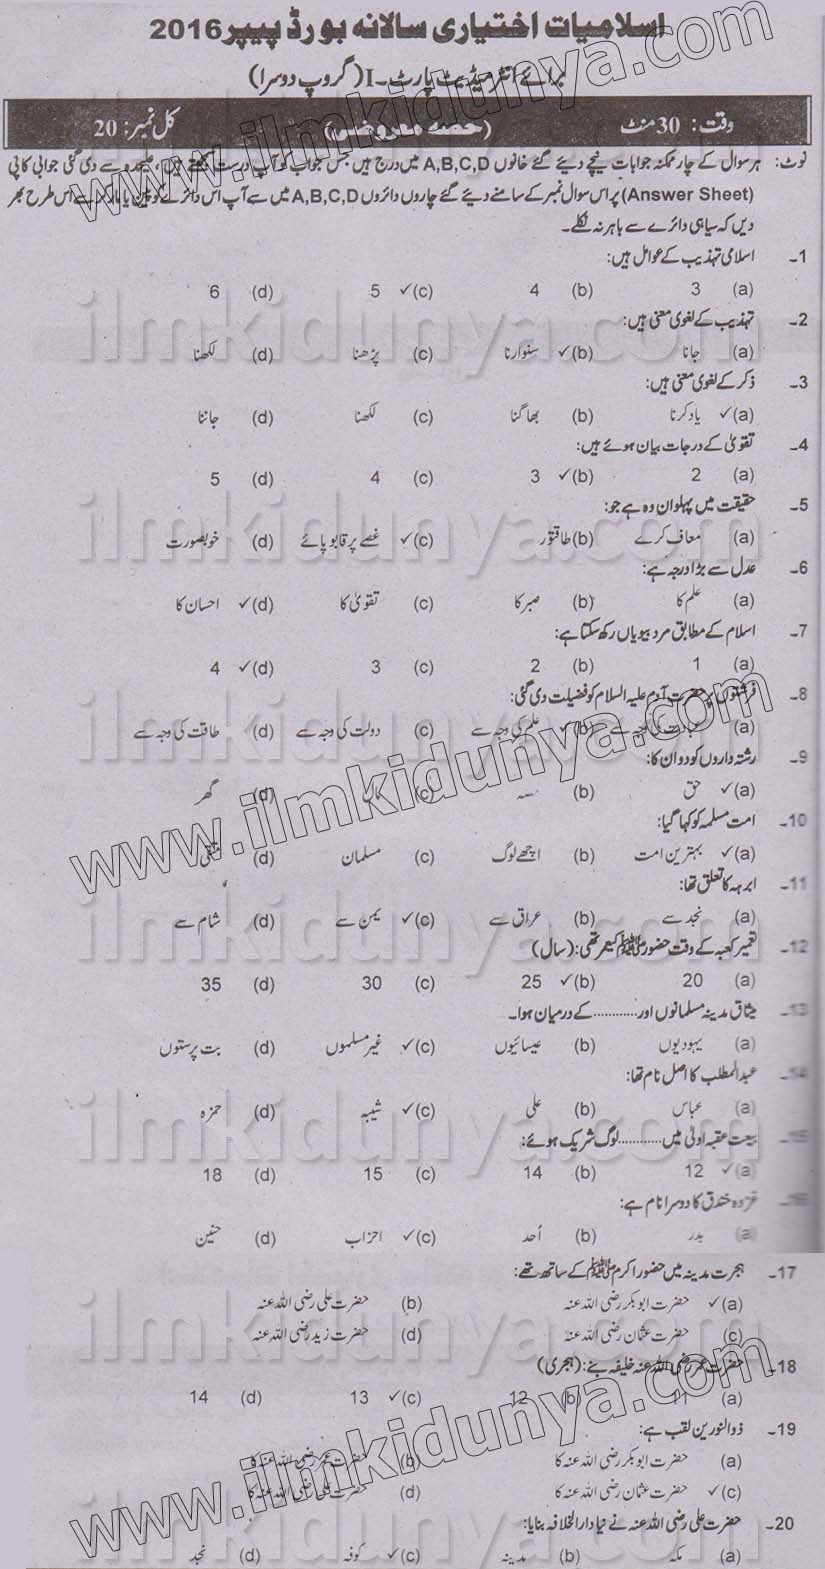 اسلامیات اختیاری سالانہ بورڈ پیپر 2016
برائے انٹرمیڈیٹ پارٹ۔I (گروپ دوسرا)
وقت: 30 منٹ (حصہ معروضی) کل نمبر: 20
نوٹ: ہر سوال کے چار ممکنہ جوابات نیچے دیئے گئے خانوں A,B,C,D میں درج ہیں جس جواب کو آپ درست سمجھتے ہیں، علیحدہ سے دی گئی جوابی کاپی
(Answer Sheet) پر اس سوال نمبر کے سامنے دیئے گئے چاروں دائروں A,B,C,D میں سے آپ اس دائرے کو پین یا مارکر سے اس طرح بھر
دیں کہ سیاہی دائرے سے باہر نہ نکلے۔
1۔ اسلامی تہذیب کے عوامل ہیں:
(a) 3 (b) 4 (c)✓ 5 (d) 6
2۔ تہذیب کے لغوی معنی ہیں:
(a) جانا (b)✓ سنوارنا (c) پڑھنا (d) لکھنا
3۔ ذکر کے لغوی معنی ہیں:
(a)✓ یاد کرنا (b) بھاگنا (c) لکھنا (d) جاننا
4۔ تقویٰ کے درجات بیان ہوئے ہیں:
(a) 2 (b)✓ 3 (c) 4 (d) 5
5۔ حقیقت میں پہلوان وہ ہے جو:
(a) معاف کرے (b) طاقتور (c)✓ غصے پر قابو پائے (d) خوبصورت
6۔ عدل سے بڑا درجہ ہے:
(a) علم کا (b) صبر کا (c) تقویٰ کا (d)✓ احسان کا
7۔ اسلام کے مطابق مرد بیویاں رکھ سکتا ہے:
(a) 1 (b) 2 (c) 3 (d)✓ 4
8۔ فرشتوں پر حضرت آدم علیہ السلام کو فضیلت دی گئی:
(a) عبادت کی وجہ سے (b)✓ علم کی وجہ سے (c) دولت کی وجہ سے (d) طاقت کی وجہ سے
9۔ رشتہ داروں کو دو ان کا:
(a)✓ حق (b) حصہ (c) مال (d) گھر
10۔ امت مسلمہ کو کہا گیا:
(a)✓ بہترین امت (b) اچھے لوگ (c) مسلمان (d) متقی
11۔ ابرہہ کا تعلق تھا:
(a) نجد سے (b) عراق سے (c)✓ یمن سے (d) شام سے
12۔ تعمیر کعبہ کے وقت حضور ﷺ کی عمر تھی: (سال)
(a) 20 (b)✓ 25 (c) 30 (d) 35
13۔ میثاق مدینہ مسلمانوں اور ............ کے درمیان ہوا۔
(a) یہودیوں (b) عیسائیوں (c)✓ غیر مسلموں (d) بت پرستوں
14۔ عبدالمطلب کا اصل نام تھا:
(a) عباس (b) علی (c)✓ شیبہ (d) حمزہ
15۔ بیعت عقبہ اولیٰ میں ............ لوگ شریک ہوئے:
(a)✓ 12 (b) 14 (c) 15 (d) 18
16۔ غزوہ خندق کا دوسرا نام ہے:
(a) بدر (b) اُحد (c)✓ احزاب (d) حنین
17۔ ہجرت مدینہ میں حضور اکرم ﷺ کے ساتھ تھے:
(a)✓ حضرت ابوبکر رضی اللہ عنہ (b) حضرت علی رضی اللہ عنہ
(c) حضرت عثمان رضی اللہ عنہ (d) حضرت زید رضی اللہ عنہ
18۔ حضرت عمر رضی اللہ عنہ خلیفہ بنے: (ہجری)
(a) 11 (b) 12 (c)✓ 13 (d) 14
19۔ ذوالنورین لقب ہے:
(a) حضرت ابوبکر رضی اللہ عنہ کا (b) حضرت عمر رضی اللہ عنہ کا
(c)✓ حضرت عثمان رضی اللہ عنہ کا (d) حضرت علی رضی اللہ عنہ کا
20۔ حضرت علی رضی اللہ عنہ نے نیا دارالخلافہ بنایا:
(a) مکہ (b) مدینہ (c)✓ کوفہ (d) نجد
www.ilmkidunya.com
ilmkidunya.com
ilmkidunya.com
www.ilmkidunya.com
ilmkidunya.com
ilmkidunya.com
ilmkidunya.com
www.ilmkidunya.com